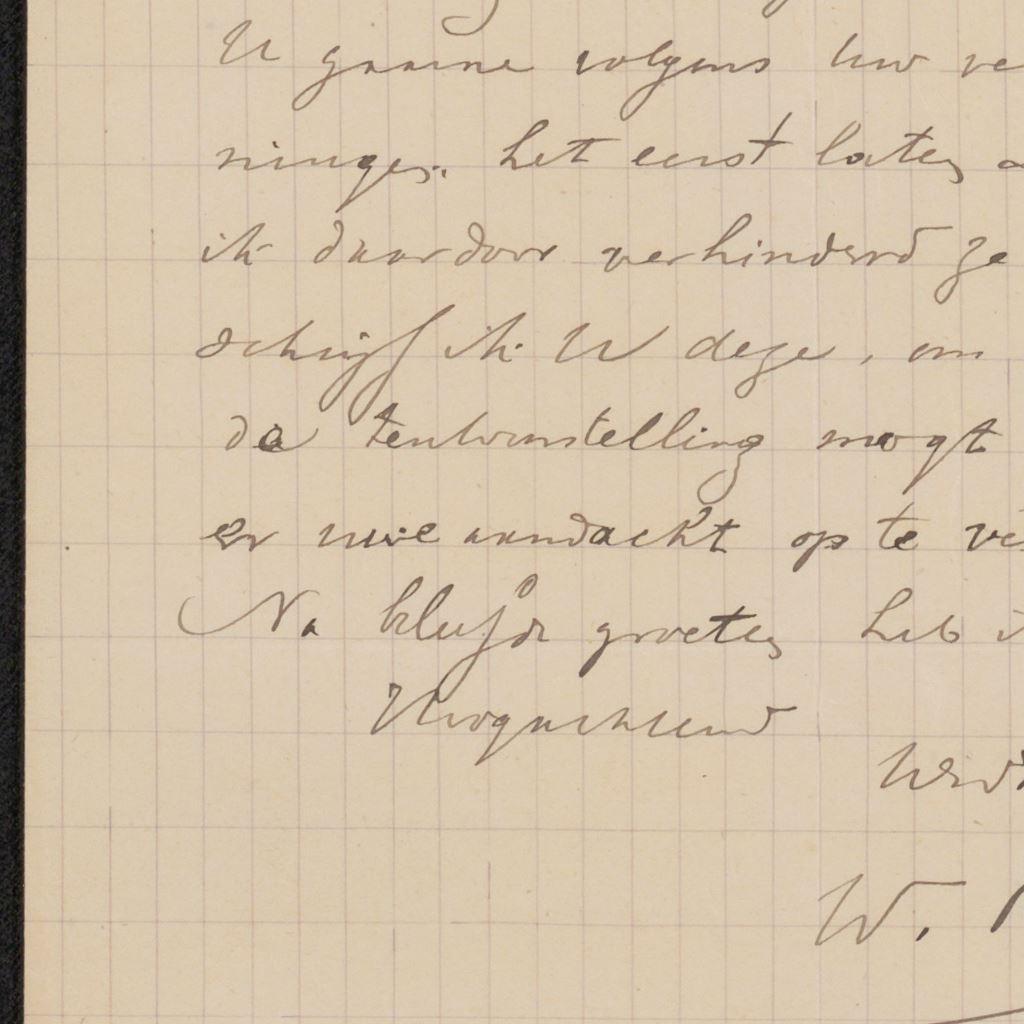 U gaarne volgens Uw ve
ninges. het eerst laten
ik daardoor verhinderd ge
schrijf ik U deze, om
de tentoonstelling mogt
er uwe aandacht op te ve
Na beleefde groeten heb i
Hoogachtend
Uwd
W.